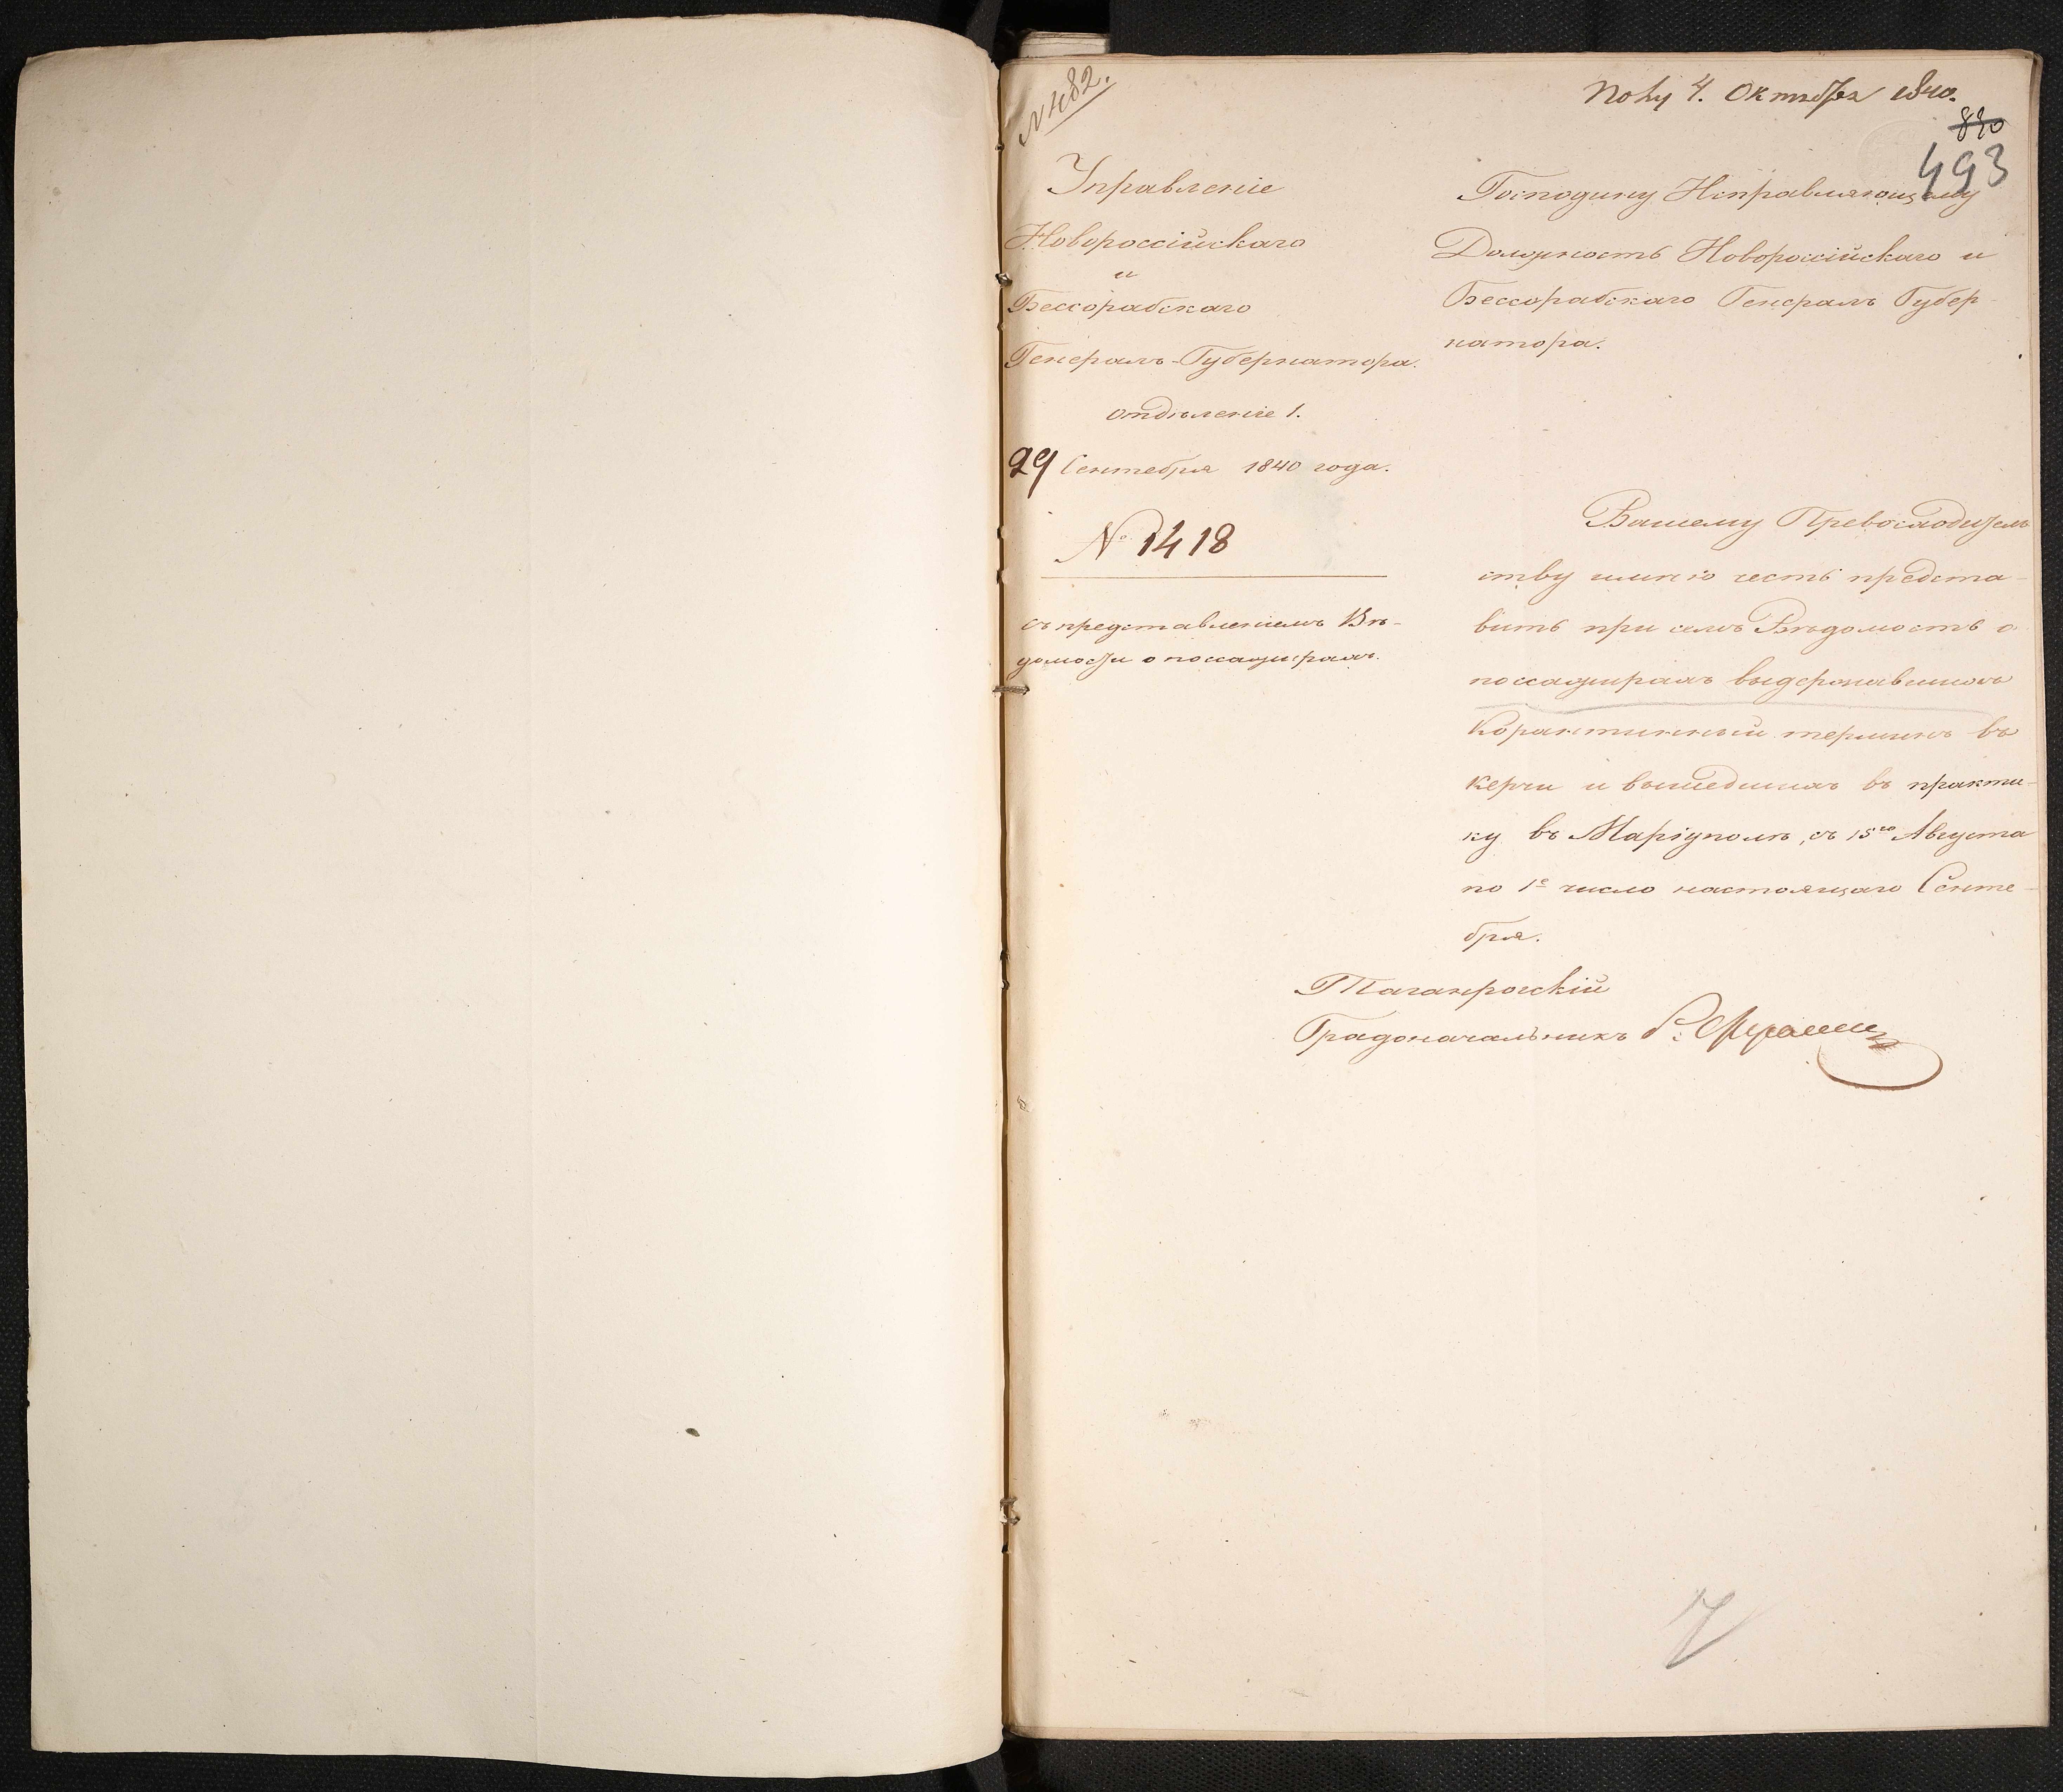 № 1182.
Полу 4. Октября 1840.
890
493
Управленіе
Новороссійскаго
и
Бессорабскаго
Генералъ-Губернатора.
отдѣленіе 1.
29 Сентебря 1840 года.
№ 1418
съ представленіемъ Вѣ-
домости о поссажирахъ.
Господину Исправляющему
Должность Новороссійскаго и
Бессорабскаго Генералъ Губер-
натора.
Вашему Превосходитель
ству имѣю честь предста-
вить при семъ Вѣдомость о
поссажирахъ выдержавшихъ
Корантинный терминъ въ
Керчи и вышедшихъ въ практи-
ку въ Маріуполѣ, съ 15го Августа
по 1е число настоящаго Сенте-
бря.
Таганрогскій
Градоначальникъ